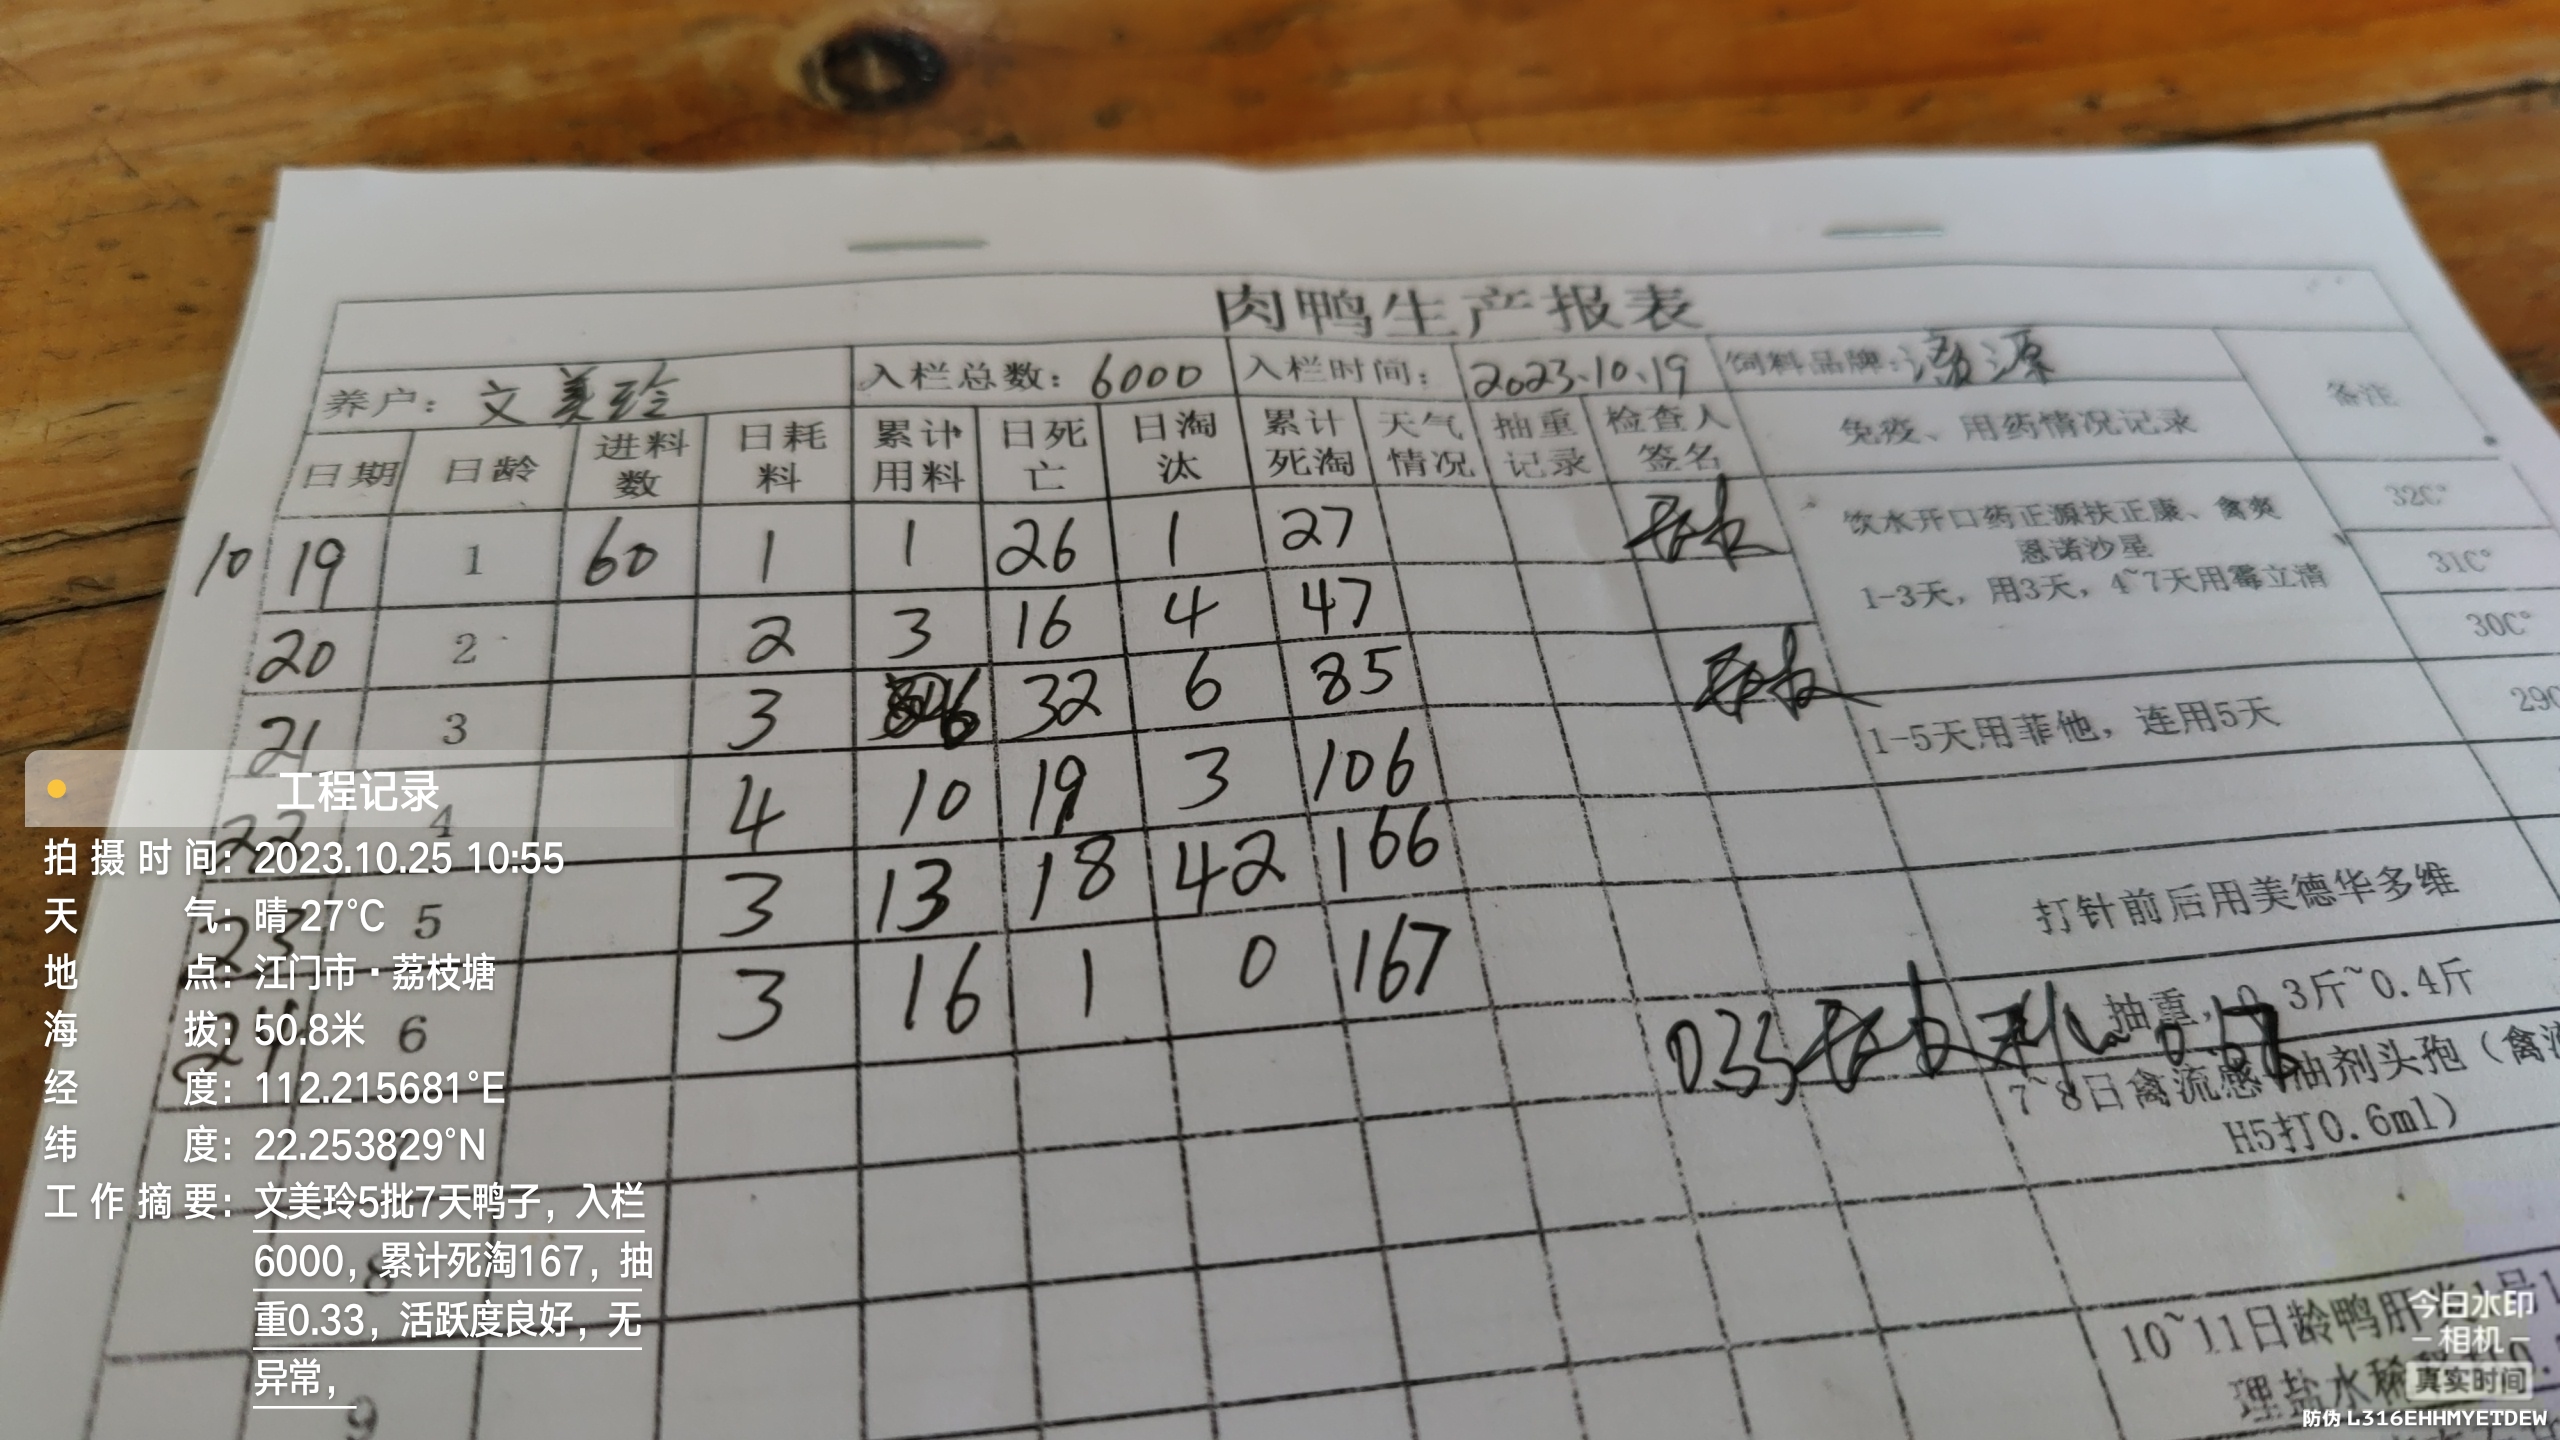 肉鸭生产报表
养户：文美玲 入栏总数：6000 入栏时间：2023.10.19 饲料品牌： 备注
日期 日龄 进料数 日耗料 累计用料 日死亡 日淘汰 累计死淘 天气情况 抽重记录 检查人签名 免疫、用药情况记录
10 19 1 60 1 1 26 1 27
20 2 2 3 16 4 47
21 3 3 6 32 6 85
22 4 4 10 19 3 106
23 5 3 13 18 42 166
24 6 3 16 1 0 167
8
9
饮水开口药正源扶正康、禽炎
恩诺沙星
1-3天，用3天，4~7天用霉立清
32C°
31C°
30C°
1-5天用菲他，连用5天
打针前后用美德华多维
抽重，0.3斤~0.4斤
033
7~8日禽流感 油剂头孢（禽流
H5打0.6ml）
10~11日龄鸭肝
工程记录
拍摄时间：2023.10.25 10:55
天气：晴 27°C
地点：江门市·荔枝塘
海拔：50.8米
经度：112.215681°E
纬度：22.253829°N
工作摘要：文美玲5批7天鸭子，入栏
6000，累计死淘167，抽
重0.33，活跃度良好，无
异常，
今日水印
-相机-
真实时间
防伪 L316EHHMYETDEW